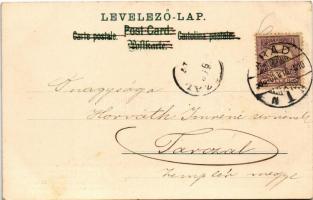 LEVELEZŐ-LAP.
Post Card
Carte postale. Cartolina postale.
Postkarte.
Önagysága
Horváth Imréné
Tarczál
Zemplén megye